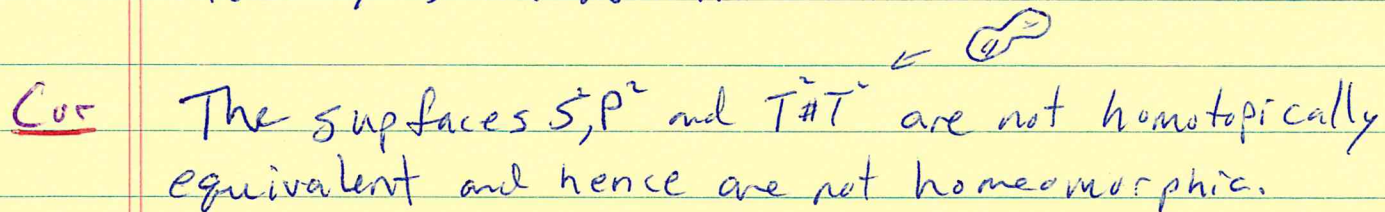 Cor The surfaces S², P² and T²#T² are not homotopically
equivalent and hence are not homeomorphic.